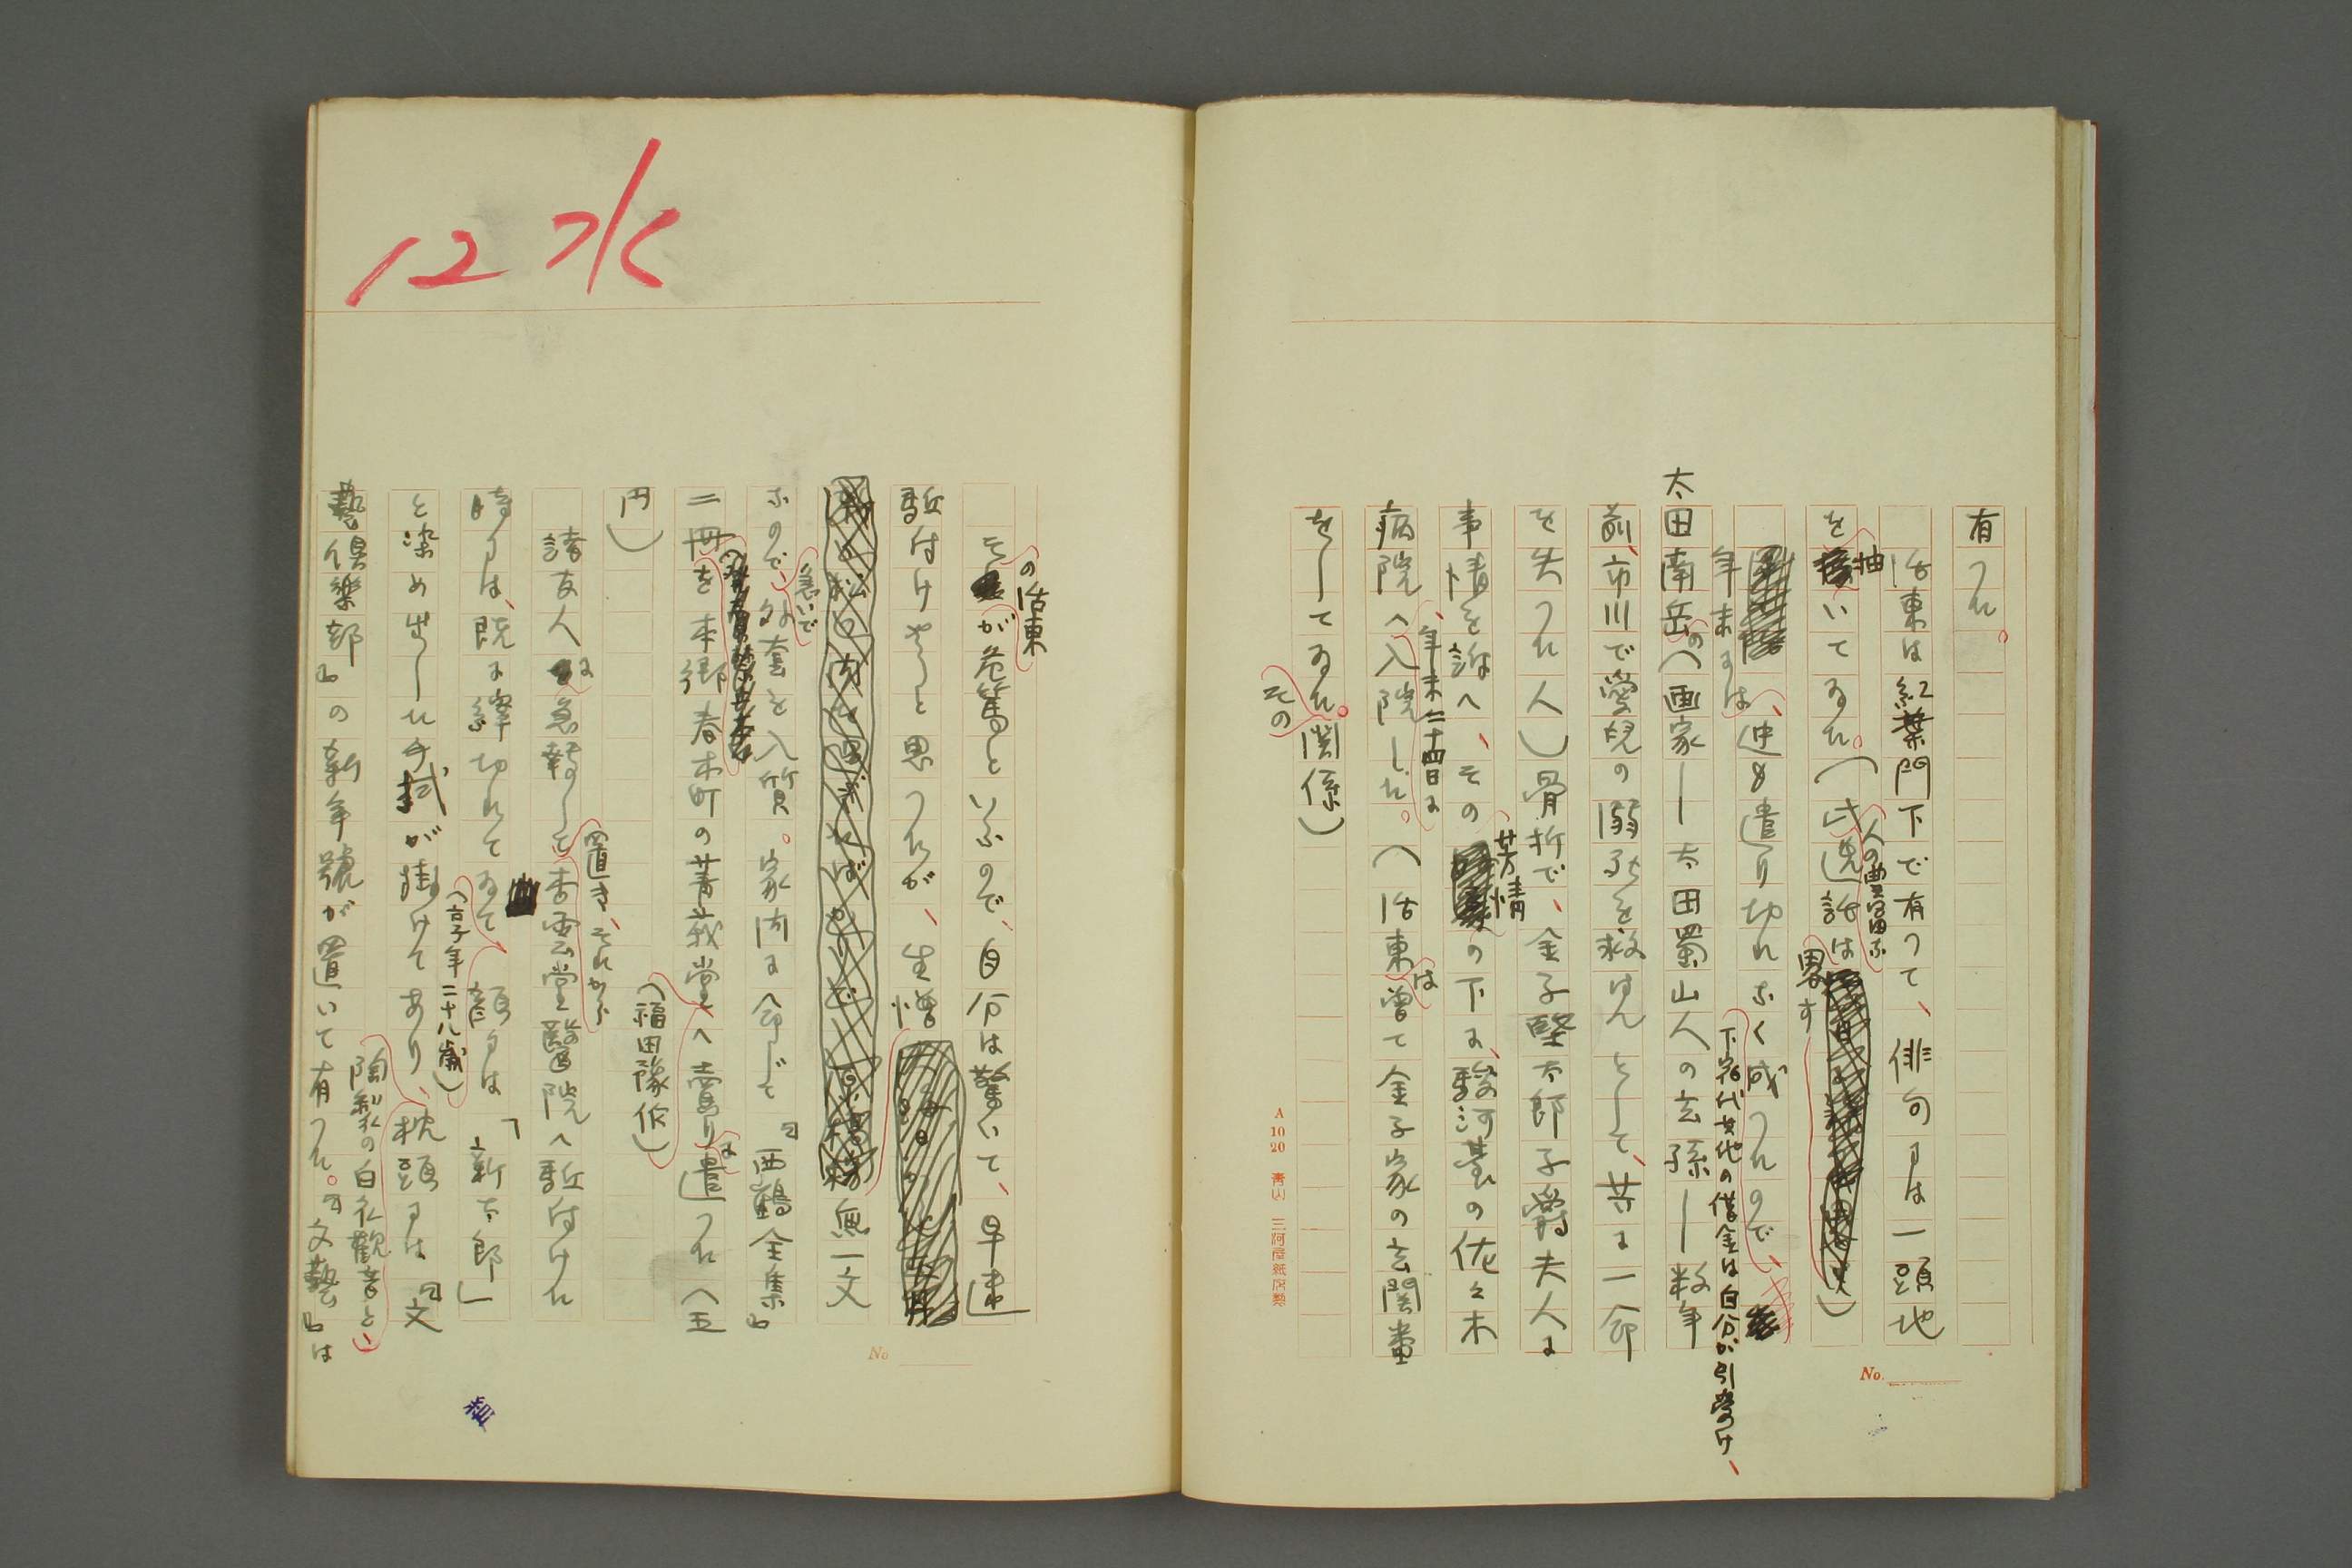 有つた。
活東は紅葉門下で有つて、俳句では一頭地
を抽いてゐた。(此人の豊富な逸話は畧す)
年末には、迚も遣り切れなく成つたので、
下宿代其他の借金は自分が引受け、
太田南岳の(画家―太田蜀山人の玄孫―数年
前、市川で愛児の溺死を救はんとして、共に一命
を失つた人)骨折で、金子堅太郎子爵夫人に
事情を訴へ、その芳情の下に、駿河臺の佐々木
病院へ、年末二十四日に入院した。(活東は曽て金子家の玄関番
をしてゐた。その関係)
A 10 20
No.
12 水
その活東が危篤といふので、自分は驚いて、早速
駈付けやうと思つたが、生憎
無一文
なので、急いで外套を入質。家内に命じて『西鶴全集』
二冊を本郷春木町の菁莪堂へ賣りに遣つた(五
円)
(福田豫作)
諸友人に急報して置き、それから杏雲堂醫院へ駈付けた
時には、既に縡切れてゐて、(享年二十八歳)顔には「新太郎」
と染め出した手拭が掛けてあり、枕頭には『文
陶製の白衣観音と、
藝倶樂部』の新年號が置いて有つた。『文藝』は
No